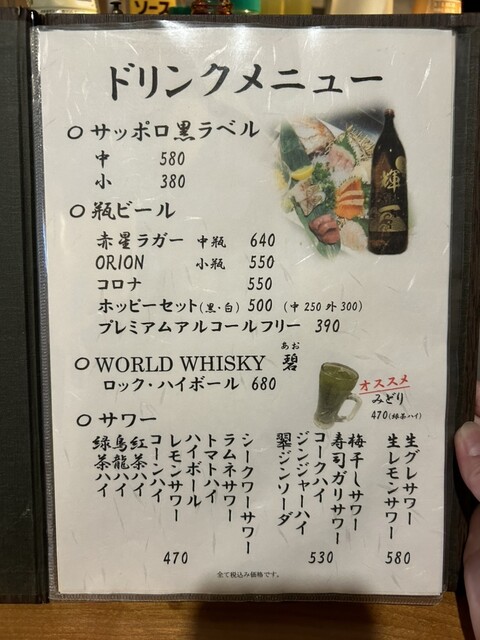 ソース
ドリンクメニュー
○ サッポロ黒ラベル
中 580
小 380
○ 瓶ビール
赤星ラガー 中瓶 640
ORION 小瓶 550
コロナ 550
ホッピーセット(黒・白) 500 (中250 外300)
プレミアムアルコールフリー 390
○ WORLD WHISKY 碧
あお
ロック・ハイボール 680
オススメ
みどり
470(緑茶ハイ)
○ サワー
生グレサワー
生レモンサワー
580
梅干しサワー
寿司ガリサワー
コークハイ
ジンジャーハイ
翠ジンソーダ
530
シークワーサワー
ラムネサワー
トマトハイ
ハイボール
レモンサワー
コーンハイ
紅茶ハイ
烏龍ハイ
緑茶ハイ
470
全て税込み価格です。